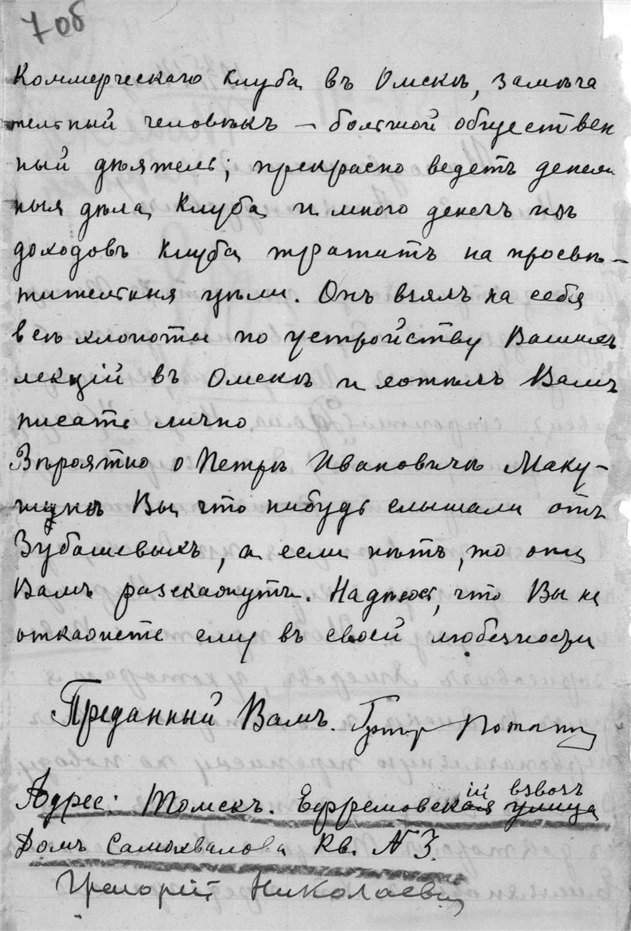 7 об
Коммерческаго Клуба въ Омскѣ, замѣча
тельный человѣкъ – большой обществен
ный дѣятель; прекрасно ведетъ денеж
ныя дѣла Клуба и много денегъ изъ
доходовъ Клуба тратитъ на просвѣ–
тительныя цѣли. Онъ взялъ на себя
всѣ хлопоты по устройству Вашихъ
лекцій въ Омскѣ и хотѣлъ Вамъ
писать лично
Вѣроятно о Петрѣ Ивановичѣ Маку–
шинѣ Вы что нибудь слышали отъ
Зубашевыхъ, а если нѣтъ, то они
Вамъ разскажутъ. Надѣюсь, что Вы не
откажете ему въ своей любезности
Преданный Вамъ. Григор Потанин
Адресъ: Томскъ. Ефремовская улица
ій взвозъ
Домъ Самохвалова Кв. № 3.
Григорій Николаевич